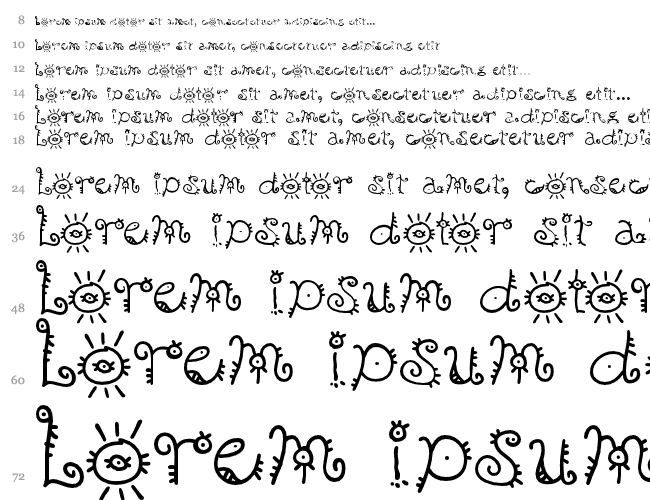 8 Lorem ipsum dotor sit amet, consectetuer adipiscing etit...
10 Lorem ipsum dotor sit amet, consectetuer adipiscing etit
12 Lorem ipsum dotor sit amet, consectetuer adipiscing etit...
14 Lorem ipsum dotor sit amet, consectetuer adipiscing etit...
16 Lorem ipsum dotor sit amet, consectetuer adipiscing eti
18 Lorem ipsum dotor sit amet, consectetuer adipis
24 Lorem ipsum dotor sit amet, consec
36 Lorem ipsum dotor sit a
48 Lorem ipsum dotor
60 Lorem ipsum d
72 Lorem ipsum